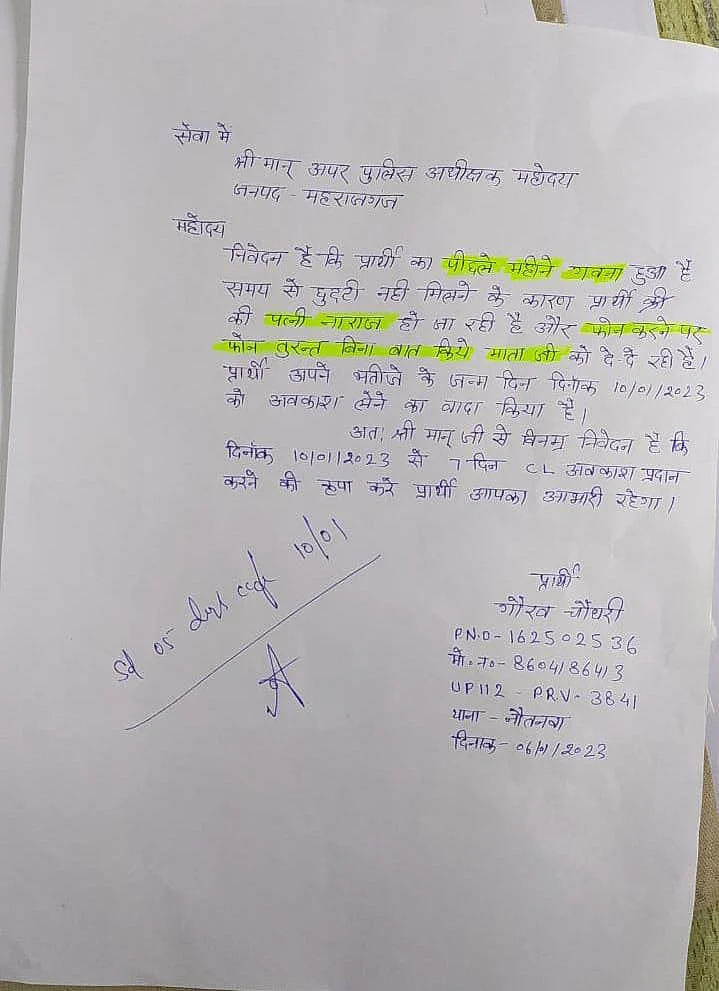 सेवा में
श्री मान् अपर पुलिस अधीक्षक महोदय
जनपद - महराजगंज
महोदय
निवेदन है कि प्रार्थी का पीछले महीने गवना हुआ है
समय से छुट्टी नही मिलने के कारण प्रार्थी श्री
की पत्नी नाराज हो जा रही है और फोन करने पर
फोन तुरन्त बिना बात किये माता जी को दे दे रही है।
प्रार्थी अपने भतीजे के जन्म दिन दिनांक 10/01/2023
को अवकाश लेने का वादा किया है।
अतः श्री मान् जी से विनम्र निवेदन है कि
दिनांक 10/01/2023 से 7 दिन CL अवकाश प्रदान
करने की कृपा करे प्रार्थी आपका आभारी रहेगा।
10/01
प्रार्थी
गौरव चौधरी
P.N.O - 162502536
मो. न. - 8604186413
UP112 - P.R.V - 3841
थाना - नौतनवा
दिनांक - 06/01/2023